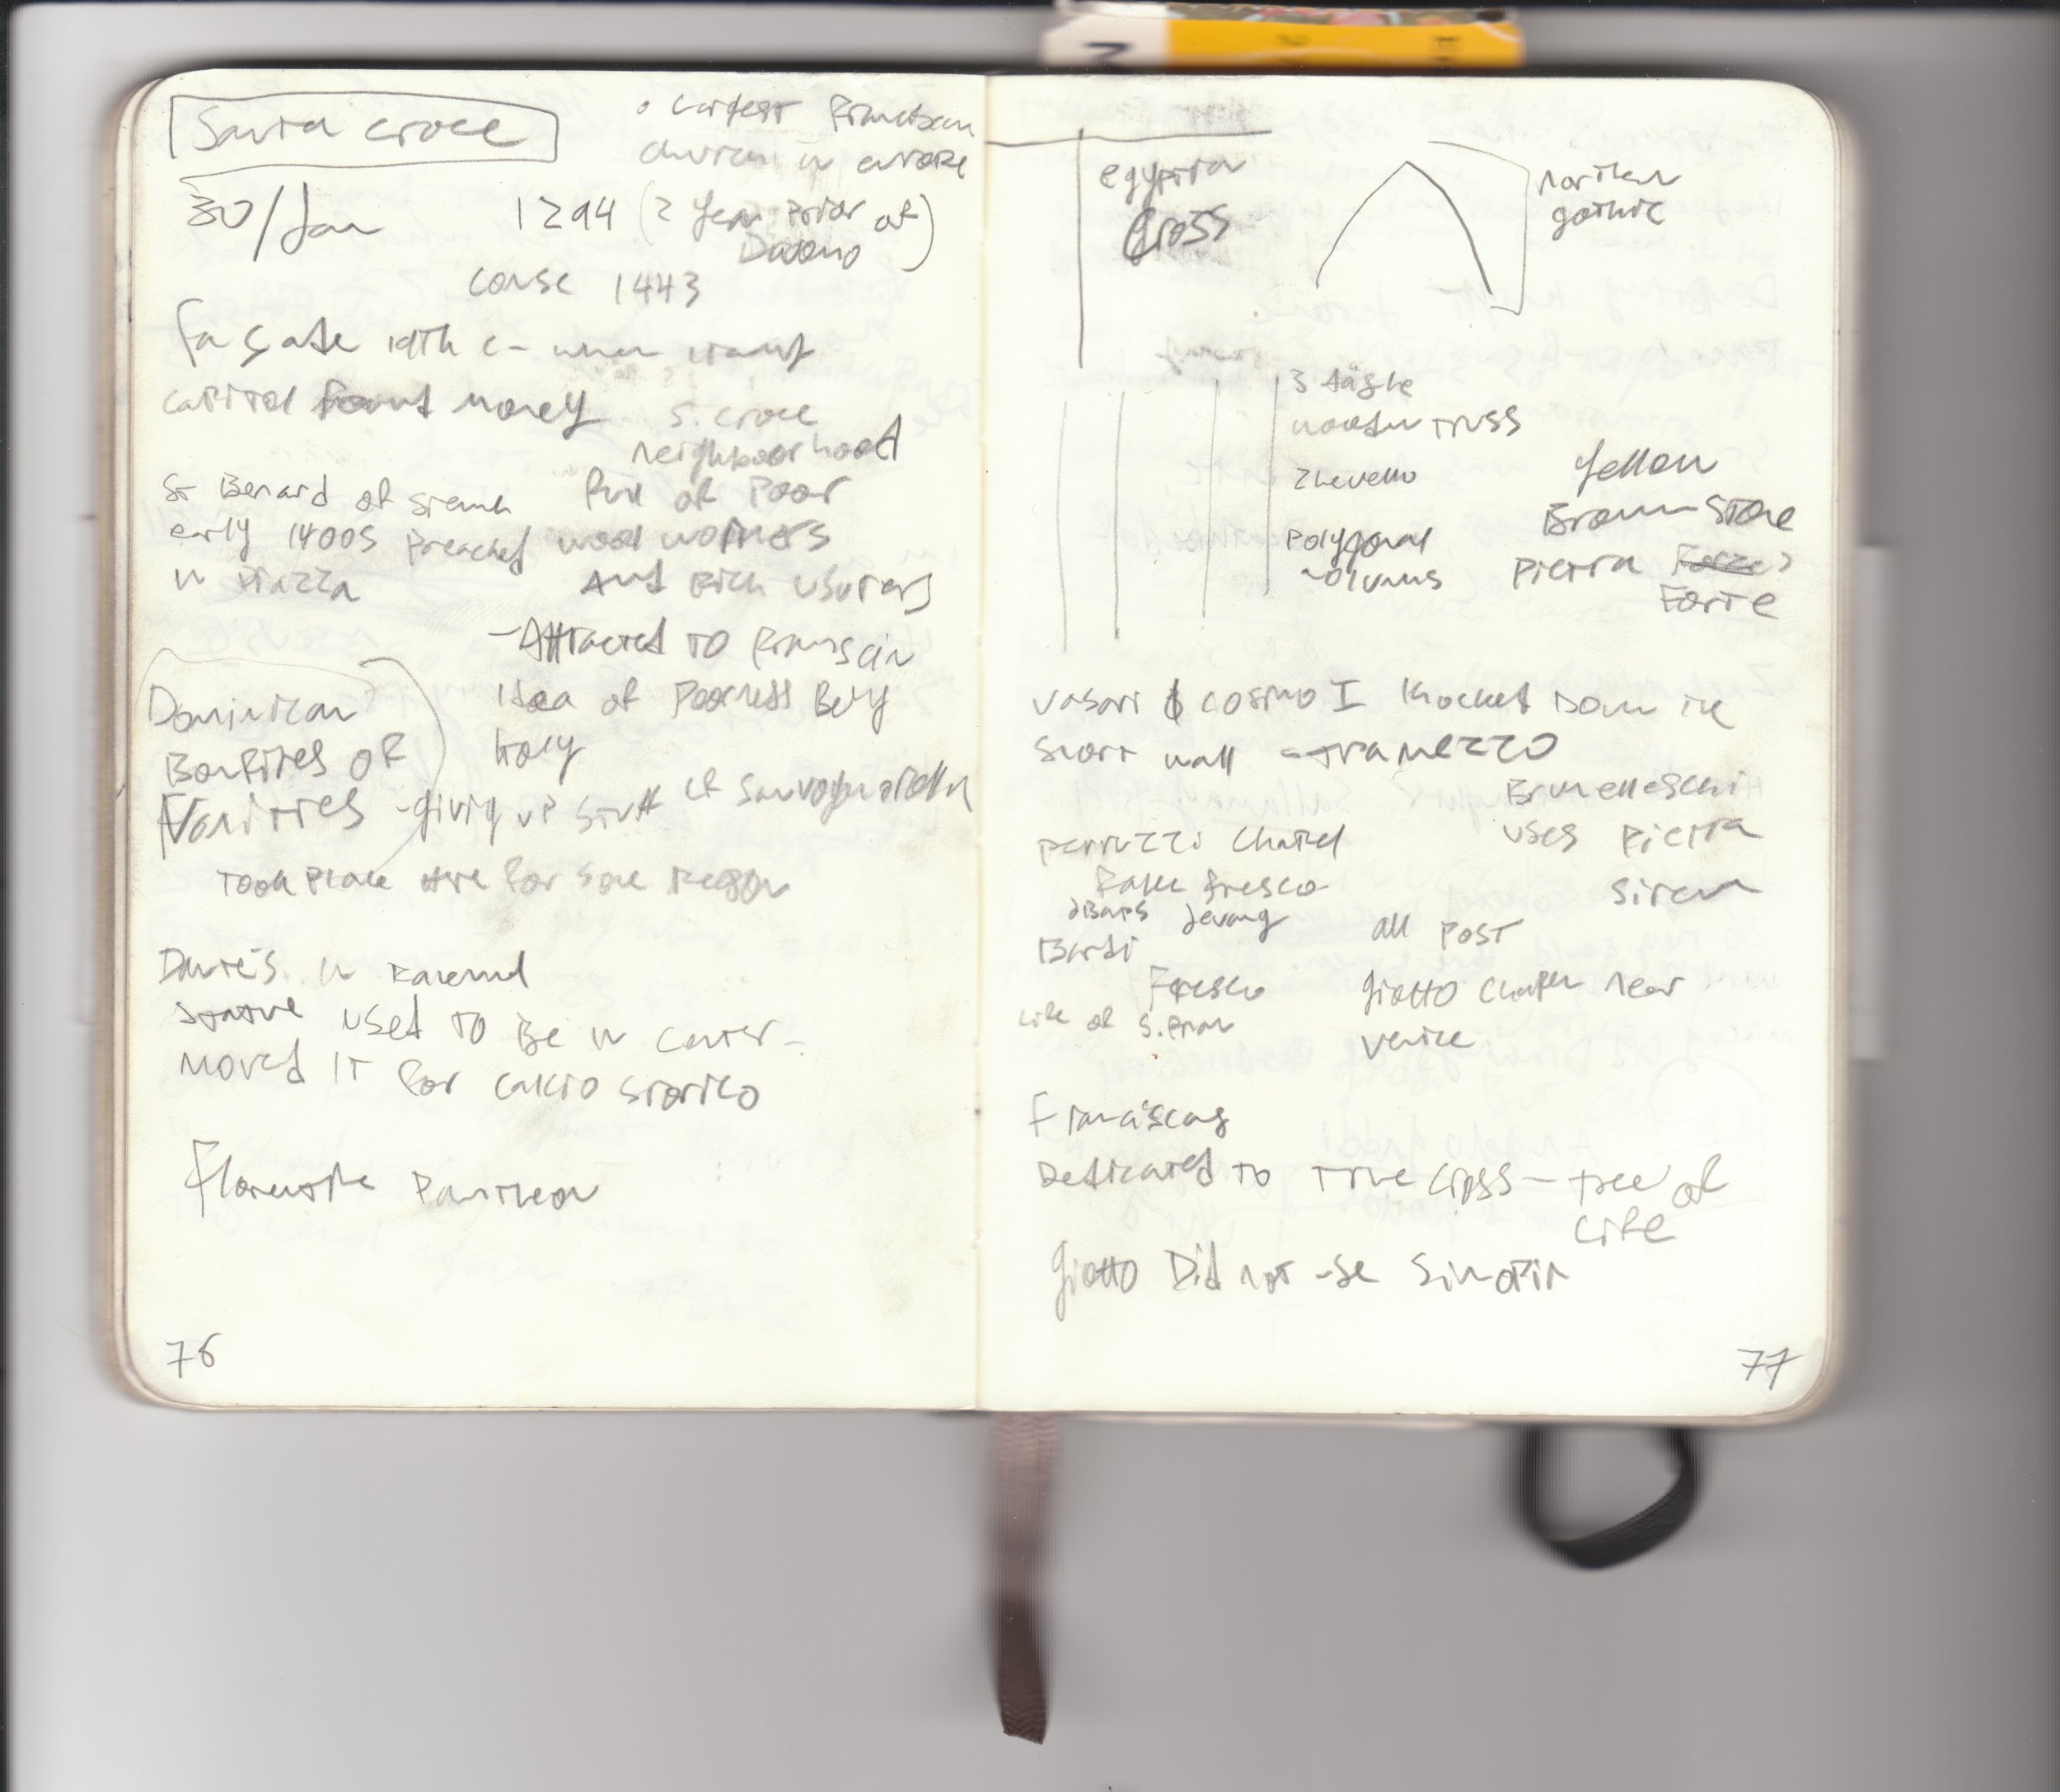 Santa Croce
• Largest Franciscan
church in europe
30/Jan
1294 (2 year prior of
Duomo)
conse 1443
Façade 19th c - when
capital found money
S. croce
neighboorhood
St Benard of Siena
full of poor
early 1400s preached
wool workers
in Piazza
And Rich usurers
- Attracted to Franscin
Idea of Poorness Being
Holy
Dominican
Bonfires of
Vanities - giving up stuff cf Savognarolla
Took place here for some reason
Dante's in Ravenna
statue used to be in center -
moved it for calcio storico
Florentine Pantheon
76
egyptian
Cross
northern
gothic
3 aisle
wooden truss
2 levello
Polygonal
columns
Yellow
Brown Stone
Pietra
Forte
Vasari & Cosimo I knocked down the
short wall - tramezzo
Brunelleschi
uses Pietra
Siren
Perruzzi Chapel
fresco
Bardi
Fresco
Life of S. Fran
all post
Giotto Chapel near
Venice
Franciscans
Dedicated to True Cross - tree of
Life
Giotto Did not use Sinopia
77